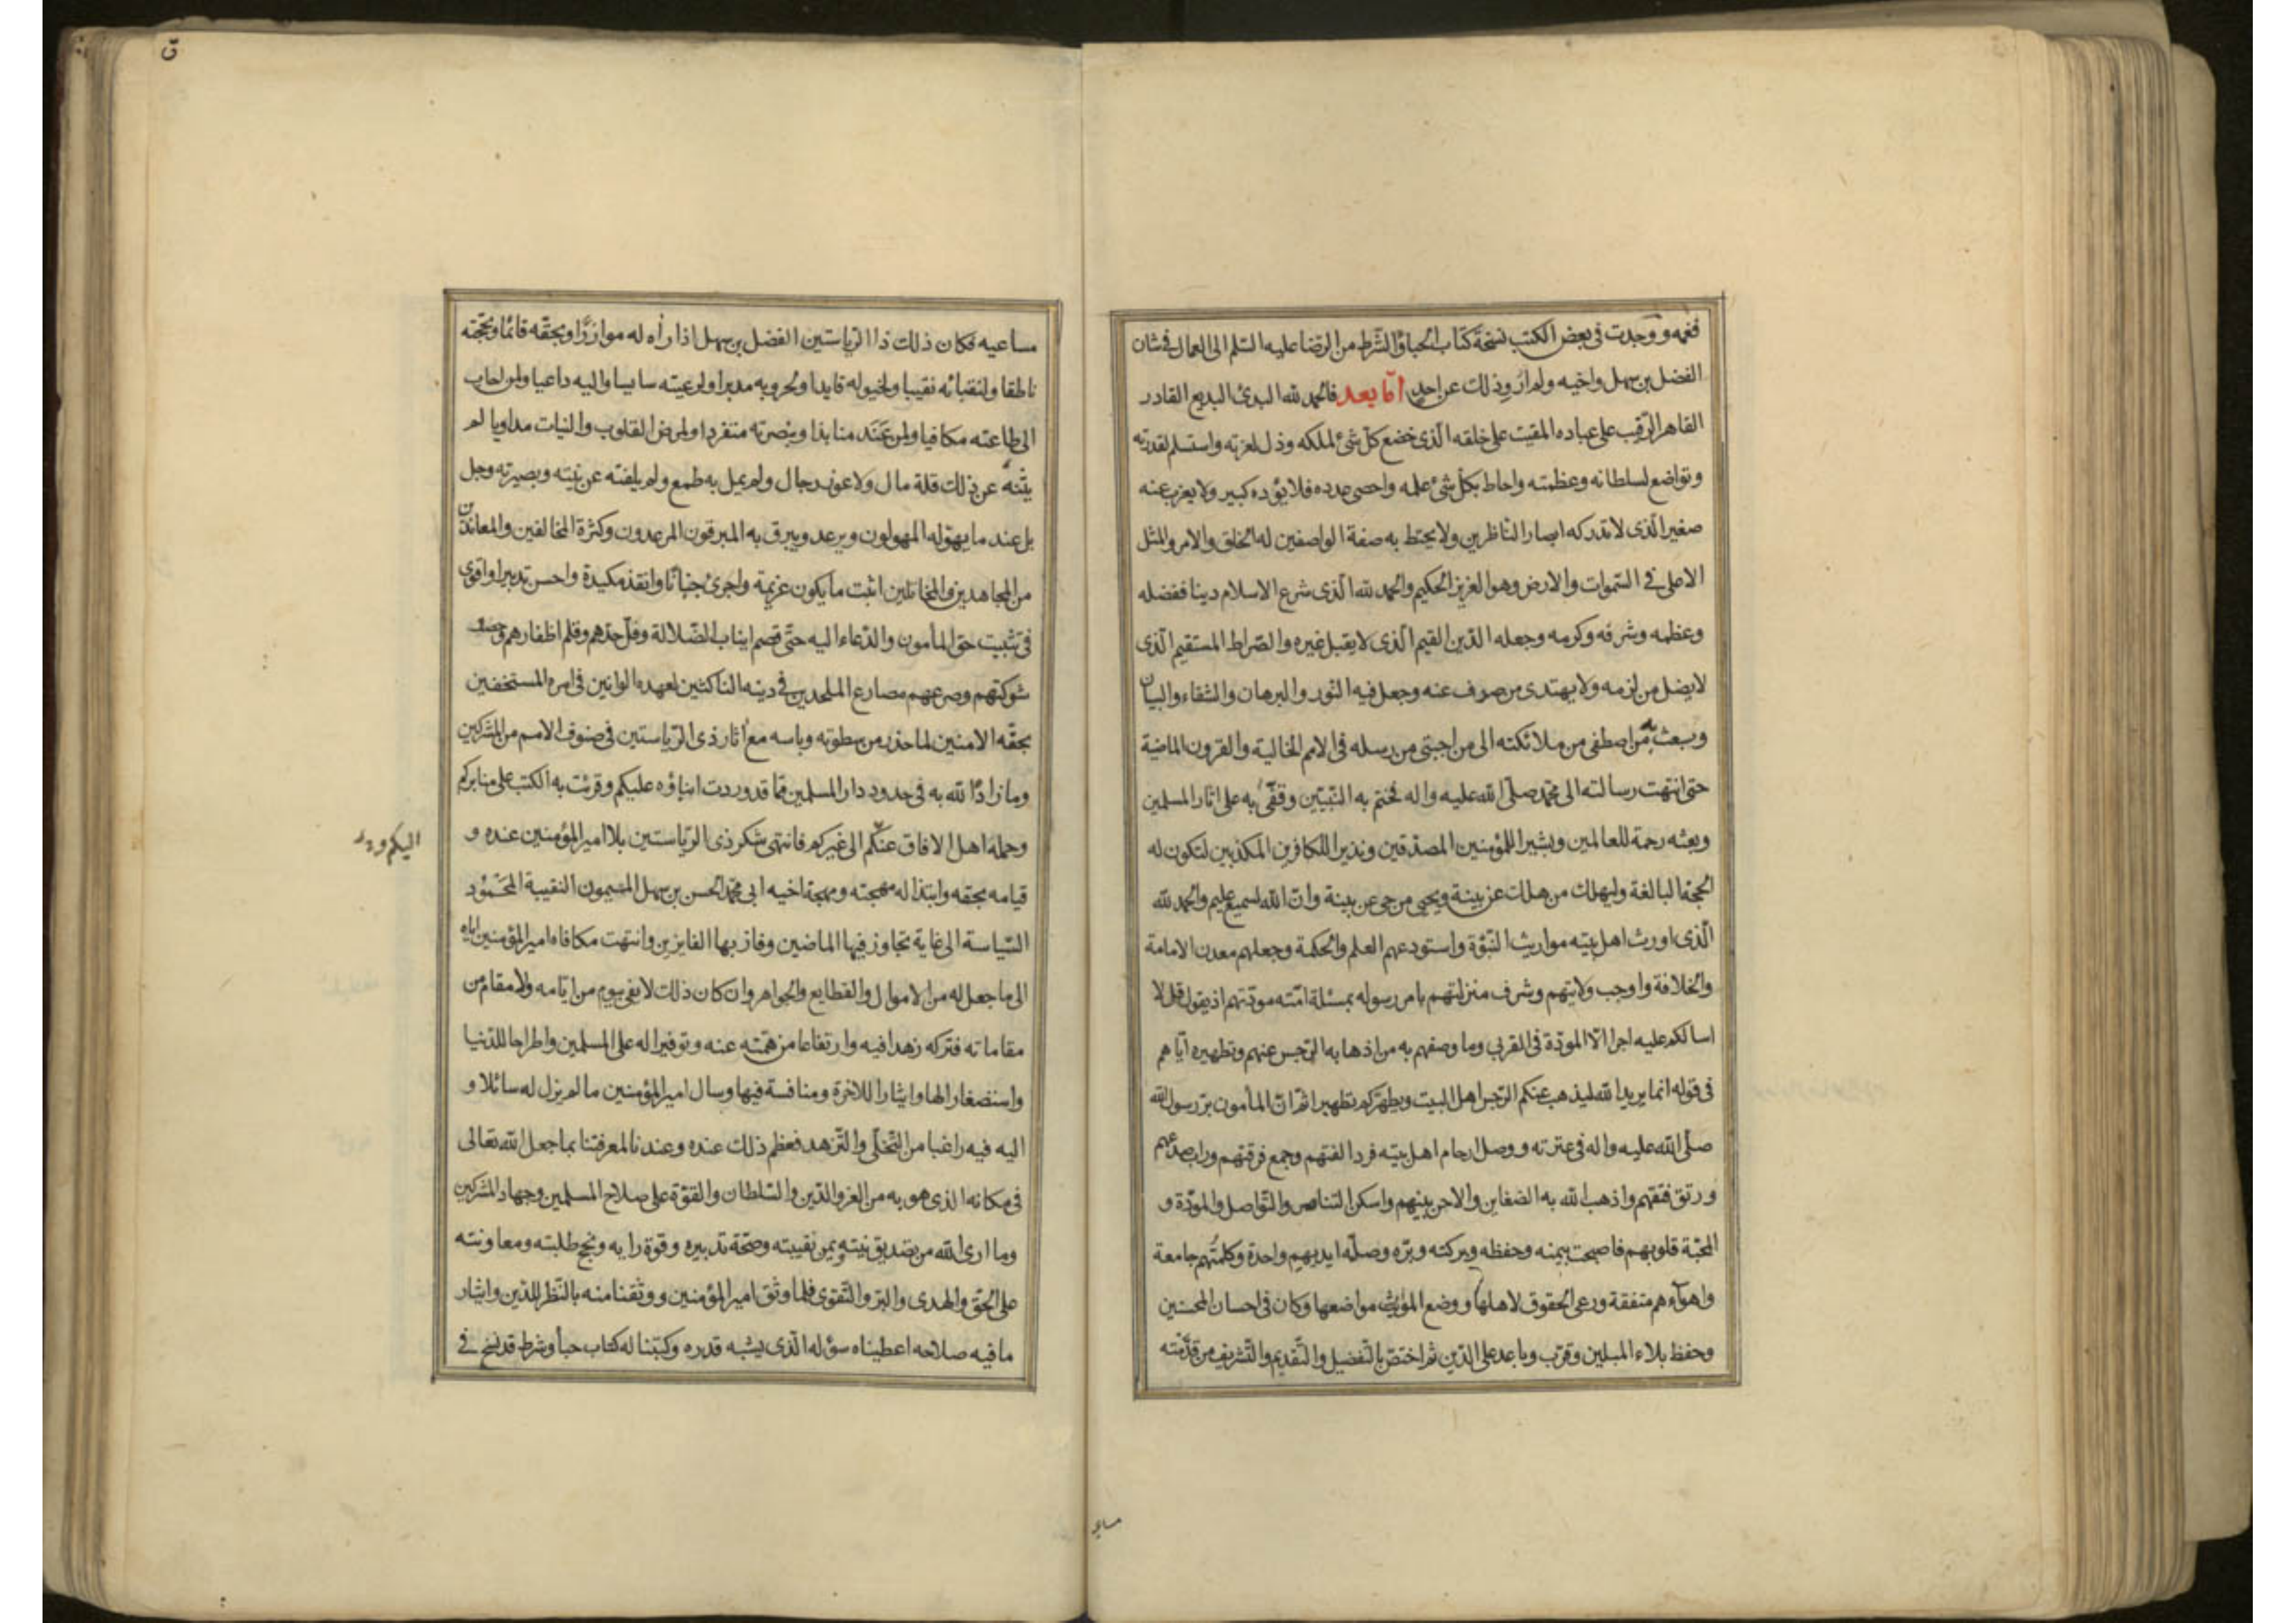 فغمه ووجدت فى بعض الكتب نسخة كتاب الحباؤ الشرط من الرضا عليه السّلم الى العمال فى شان
الفضل بن سهل واخيه ولم ارو ذلك عن احد امّا بعد فالحمد لله البدئ البديع القادر
القاهر الرّقيب على عباده المقيت على خلقه الّذى خضع كلّ شئ لملكه وذل لعزته واستسلم لقدرته
وتواضع لسلطانه وعظمته واحاط بكلّ شئ علمه واحصى عدده فلا يؤده كبير ولا يعزب عنه
صغير الّذى لا تدركه ابصار النّاظرين ولا يحتط به صفة الواصفين له الخلق والامر والمثل
الاعلى فى السّموات والارض وهو العزيز الحكيم والحمد لله الّذى شرع الاسلام دينا ففضله
وعظمه وشرفه وكرمه وجعله الدّين القيم الّذى لا يقبل غيره والصّراط المستقيم الّذى
لا يضل من لزمه ولا يهتدى من صرف عنه وجعل فيه النّور والبرهان والشفاء والبيان
وبعث به من اصطفى من ملائكته الى من اجتبى من رسله فى الامم الخالية والقرون الماضية
حتى انتهت رسالته الى محمّد صلّى الله عليه واله فختم به النّبيّين وقفّى به على اثار المسلمين
وبعثه رحمة للعالمين وبشيرا للمؤمنين المصدّقين ونذيرا للكافرين المكذبين لتكون له
الحجة البالغة وليهلك من هلك عن بينة ويحيى من حى عن بينة وانّ الله لسميع عليم والحمد لله
الّذى اورث اهل بيته مواريث النّبوّة واستودعهم العلم والحكمة وجعلهم معدن الامامة
والخلافة واوجب ولايتهم وشرف منزلتهم بامر رسوله بمسئلة امّته مودّتهم اذ يقول قل لا
اسالكم عليه اجرا الّا المودّة فى القربى وما وصفهم به من اذهابه الرّجس عنهم وتطهيره ايّاهم
فى قوله انما يريد الله ليذهب عنكم الرّجس اهل البيت ويطهّركم تطهيرا ثمّ انّ المأمون برّ رسول الله
صلّى الله عليه واله فى عترته ووصل ارحام اهل بيته فرد الفتهم وجمع فرقتهم وراب صدعهم
ورتق فتقهم واذهب الله به الضغاين والاحن بينهم واسكن التناصر والتّواصل والمودّة و
المحبّة قلوبهم فاصبحت بيمنه وحفظه وبركته وبرّه وصلّه ايديهم واحدة وكلمتهم جامعة
واهوآءهم متفقة ورعى الحقوق لاهلها ووضع المواريث مواضعها وكان فى احسان المحسنين
وحفظ بلاء المبلين وقرّب وباعد على الدّين ثم اختصّ بالتّفضيل والتّقديم والتّشريف من قدّمته
مساعـ
ق
مساعيه فكان ذلك ذا الرّياستين الفضل بن سهل اذا رأه له موازرًا وبحقّه قائمًا وبحجّته
ناطقا ولنقبائه نقيبا ولخيوله قايدا ولحروبه مدبرا ولرعيته سايسا واليه داعيا ولمن اجاب
الى طاعته مكافيا ولمن عند منابذا وبنصرته متفردا ولمرض القلوب والنيات مداويا لم
يثنه عن ذلك قلة مال ولا عون رجال ولم يمل به طمع ولم يلفته عن نيّته وبصيرته وجل
بل عند ما يهوّله المهولون ويرعد ويبرق به المبرقون المرعدون وكثرة المخالفين والمعاندين
من المجاهدين والمخاتلين اثبت ما يكون عزيمة واجرئ جنانًا وانفذ مكيدة واحسن تدبيرا واقوى
فى تثبيت حق المأمون والدّعاء اليه حتّى قصم انياب الضّلالة وفلّ حدّهم وقلم اظفارهم وحصد
شوكتهم وصرعهم مصارع الملحدين فى دينه الناكثين لعهده الوانين فى امره المستخفين
بحقّه الامنين لما حذر من سطوته وباسه مع اثار ذى الرّياستين فى صنوف الامم من المشركين
وما زادّ الله به فى حدود دار المسلمين ممّا قد وردت انباؤه عليكم وقرئت به الكتب على منابركم
وحمله اهل الافاق عنكم الى غيركم فانتهى شكر ذى الرّياستين بلا امير المؤمنين عنده و
اليكم ور
قيامه بحقه وابتذاله مهجته ومهجة اخيه ابى محمّد الحسن بن سهل الميمون النقيبة المحمود
السّياسة الى غاية تجاوز فيها الماضين وفاز بها الفايزين وانتهت مكافاة امير المؤمنين اياه
الى ما جعل له من الاموال والقطايع والجواهر وان كان ذلك لا يفى بيوم من ايّامه ولا مقام من
مقاماته فتركه زهدا فيه وارتفاعا من همّته عنه وتوفيرا له على المسلمين واطراحا للدّنيا
واستصغارا لها وايثارا للاخرة ومنافسة فيها وسال امير المؤمنين ما لم يزل له سائلا و
اليه فيه راغبا من التّخلّى والتّزهد فعظم ذلك عنده وعندنا لمعرفتنا بما جعل الله تعالى
فى مكانه الذى هو به من العز والدّين والسّلطان والقوّة على صلاح المسلمين وجهاد المشركين
وما ارى الله من تصديق نيته ويمن نقيبته وصحّة تدبيره وقوة رايه ونجح طلبته ومعاونته
على الحقّ والهدى والبرّ والتّقوى فلما وثق امير المؤمنين ووثقنا منه بالنّظر للدّين وايثار
ما فيه صلاحه اعطيناه سؤله الّذى يشبه قدره وكتبنا له كتاب حبأ وشرط قد نسخ فى